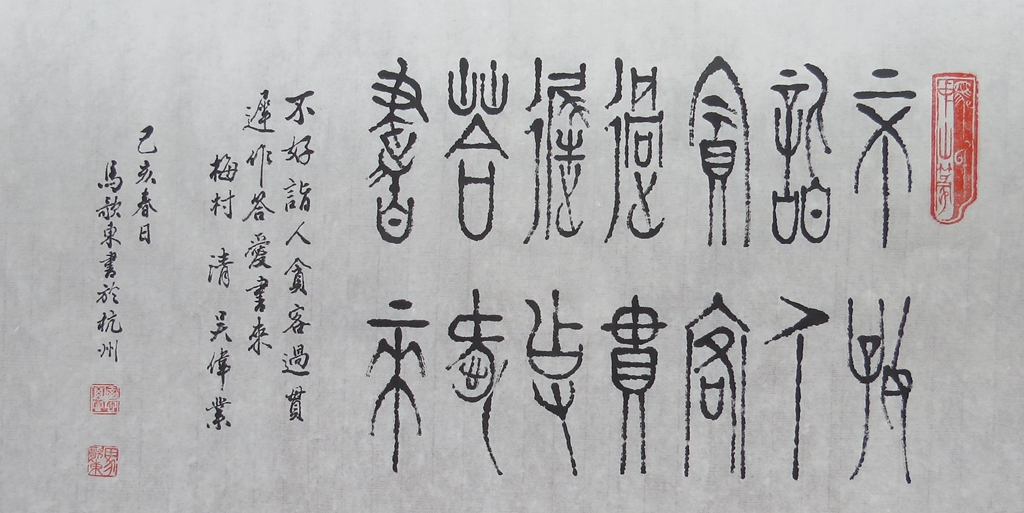 不好
詣人
貪客
過貫
遲作
答愛
書來
不好詣人貪客過貫
遲作答愛書來
梅村 清 吳偉業
己亥春日
馬歌東書於杭州